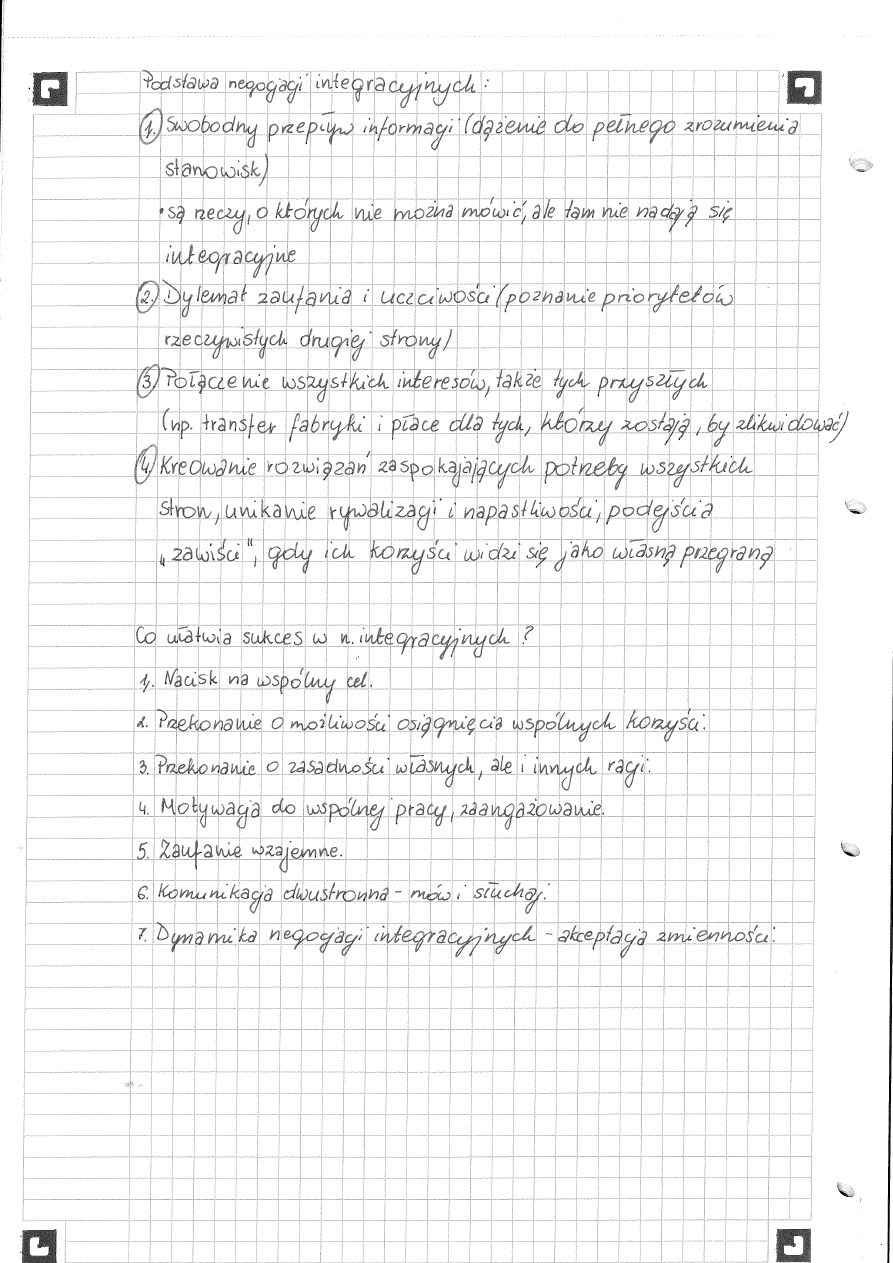 Podstawa negocjacji integracyjnych:
1. Swobodny przepływ informacji (dążenie do pełnego zrozumienia
stanowisk)
• są rzeczy, o których nie można mówić, ale tam nie nadają się
integracyjne
2. Dylemat zaufania i uczciwości (poznanie priorytetów
rzeczywistych drugiej strony)
3. Połączenie wszystkich interesów, także tych przyszłych
(np. transfer fabryki i płace dla tych, którzy zostają, by zlikwidować)
4. Kreowanie rozwiązań zaspokajających potrzeby wszystkich
stron, unikanie rywalizacji i napastliwości, podejścia
„zawiści", gdy ich korzyści widzi się jako własną przegraną
Co ułatwia sukces w n. integracyjnych?
1. Nacisk na wspólny cel.
2. Przekonanie o możliwości osiągnięcia wspólnych korzyści.
3. Przekonanie o zasadności własnych, ale i innych racji.
4. Motywacja do wspólnej pracy, zaangażowanie.
5. Zaufanie wzajemne.
6. Komunikacja dwustronna - mów i słuchaj.
7. Dynamika negocjacji integracyjnych - akceptacja zmienności.